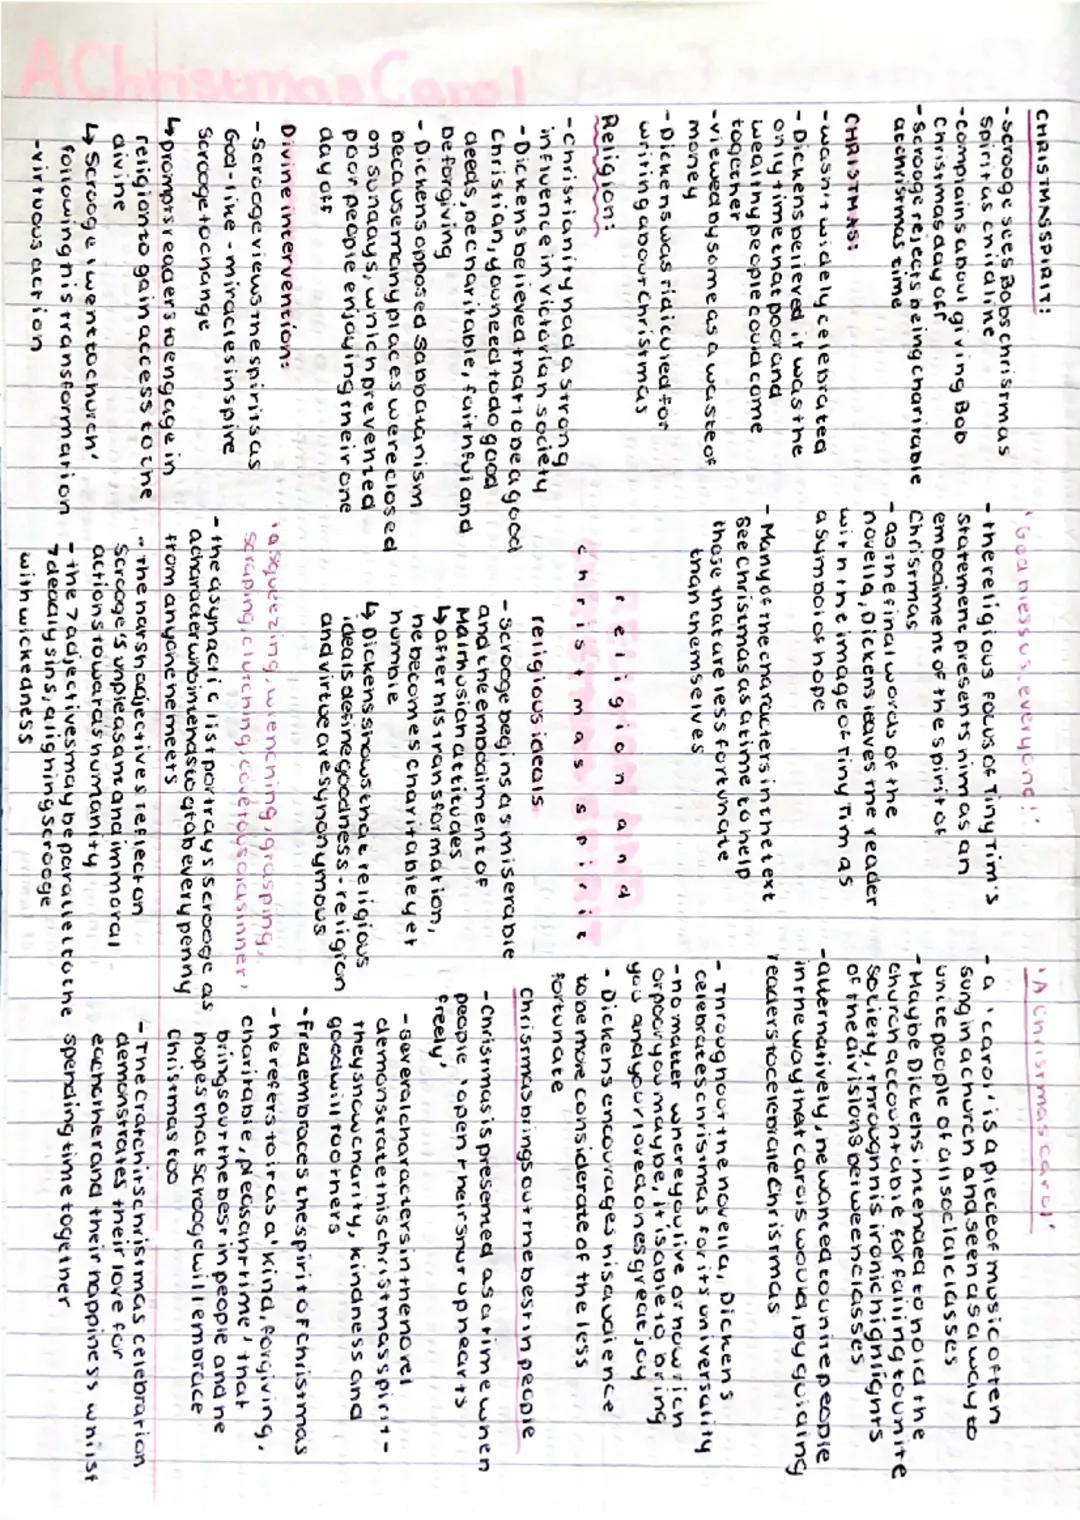 A Christmas Carol
CHRISTMAS SPIRIT:
- scrooge sees Bobs christmas
spirit as childline
- complains about giving Bob
Christmas day off
- Scrooge rejects being charitable
at christmas time
CHRISTMAS:
- wasn't widely celebrated
- Dickens believed it was the
only time that poor and
wealthy people could come
together
- viewed by some as a waste of
money
- Dickens was ridiculed for
writing about Christmas
Religion:
- Christianity had a strong
influence in victorian society
- Dickens believed that to be a good
Christian, you need to do good
deeds, be charitable, faithful and
be forgiving
- Dickens opposed Sabbatanism
because many places were closed
on sundays, which prevented
poor people enjoying their one
day off
Divine intervention:
- Scrooge views the spirits as
God-like - miracles inspire
Scrooge to change
↳ prompts readers to engage in
religion to gain access to the
divine
↳ Scrooge 'went to church'
following his transformation
- virtuous action
'God bless us, everyone!'
- the religious focus of Tiny Tim's
statement presents him as an
embodiment of the spirit of
Chrismas
- as the final words of the
novella, Dickens leaves the reader
with the image of Tiny Tim as
a symbol of hope
- Many of the characters in the text
see Christmas as a time to help
those that are less fortunate
than themselves
religion and
christmas spirit
religious ideals
- Scrooge begins as miserable
and the embodiment of
Malthusian attitudes
↳ after his transformation,
he becomes charitable yet
humble
↳ Dickens shows that religious
ideals define goodness - religion
and virtue are synonymous
'a squeezing, wrenching, grasping,
scraping, clutching, covetous old sinner'
- the asyndetic list portrays Scrooge as
a character who intends to grab every penny
from anyone he meets
- The harsh adjectives reflect on
Scrooge's unpleasant and immoral
actions towards humanity
- the 7 adjectives may be parallel to the
7 deadly sins, aligning Scrooge
with wickedness
'A Christmas carol'
- a 'carol' is a piece of music often
sung in a church and seen as a way to
unite people of all social classes
- Maybe Dickens intended to hold the
church accountable for failing to unite
society, through his ironic highlights
of the divisions between classes
- alternatively, he wanted to unite people
in the way that carols would, by guiding
readers to celebrate Chrismas
- Throughout the novella, Dickens
celebrates chrismas for its universality
- no matter where you live or how rich
or poor you may be, it is able to bring
you and your loved ones great joy
- Dickens encourages his audience
to be more considerate of the less
fortunate
Chrismas brings out the best in people
- Chrismas is presented as a time when
people 'open their shut up hearts
freely'
- several characters in the novel
demonstrate this christmas spirit -
they show charity, kindness and
goodwill to others
- Fred embraces the spirit of Christmas
- he refers to it as a 'kind, forgiving,
charitable, pleasant time' that
brings out the best in people and he
hopes that scrooge will embrace
Chistmas too
- The Cratchits christmas celebration
demonstrates their love for
eachother and their happiness whilst
spending time together